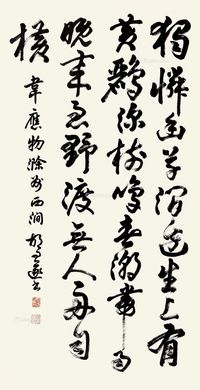 獨憐幽草澗邊生上有
黃鸝深樹鳴春潮帶雨
晚來急野渡無人舟自
橫
韋應物滁州西澗